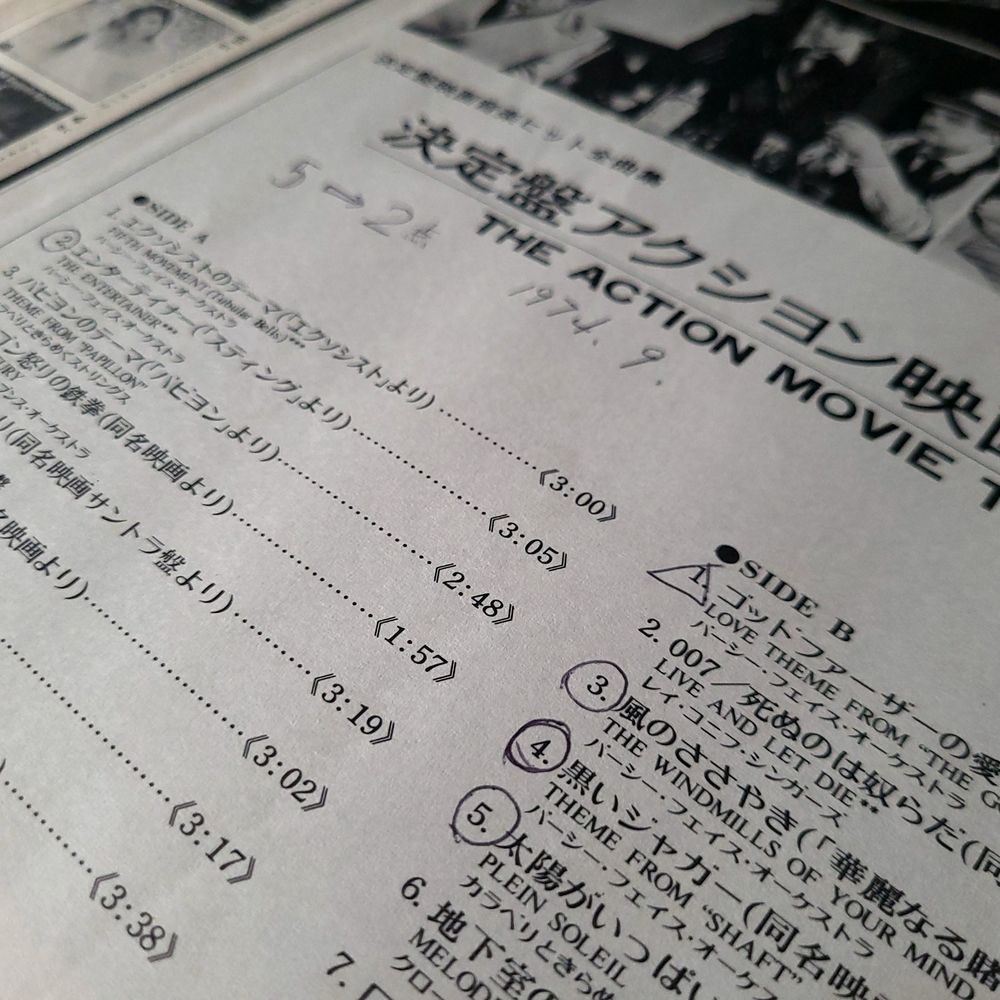 決定盤映画音楽ヒット全曲集
決定盤アクション映画
THE ACTION MOVIE T
5→2点
1974. 9.
●SIDE A
1. エクソシストのテーマ(「エクソシスト」より)……《3:00》
FIFTH MOVEMENT (Tubular Bells)***
パーシー・フェイス・オーケストラ
2. エンターティナー(「スティング」より)……《3:05》
THE ENTERTAINER***
パーシー・フェイス・オーケストラ
3. パピヨンのテーマ(「パピヨン」より)……《2:48》
THEME FROM "PAPILLON"
カラベリときらめくストリングス
ン怒りの鉄拳(同名映画サントラ盤より)……《1:57》
URY
リ(同名映画サントラ盤より)……《3:19》
名映画より)……《3:02》
《3:17》
《3:38》
●SIDE B
1. ゴッド・ファーザーの愛
LOVE THEME FROM "THE G
パーシー・フェイス・オーケストラ
2. 007/死ぬのは奴らだ(同
LIVE AND LET DIE**
レイ・コニフ・シンガーズ
3. 風のささやき(「華麗なる賭
THE WINDMILLS OF YOUR MIND
パーシー・フェイス・オーケストラ
4. 黒いジャガー(同名映
THEME FROM "SHAFT"
パーシー・フェイス・オーケス
5. 太陽がいっぱい
PLEIN SOLEIL
カラベリときらめ
6. 地下室の
MELOD
クロー
7.